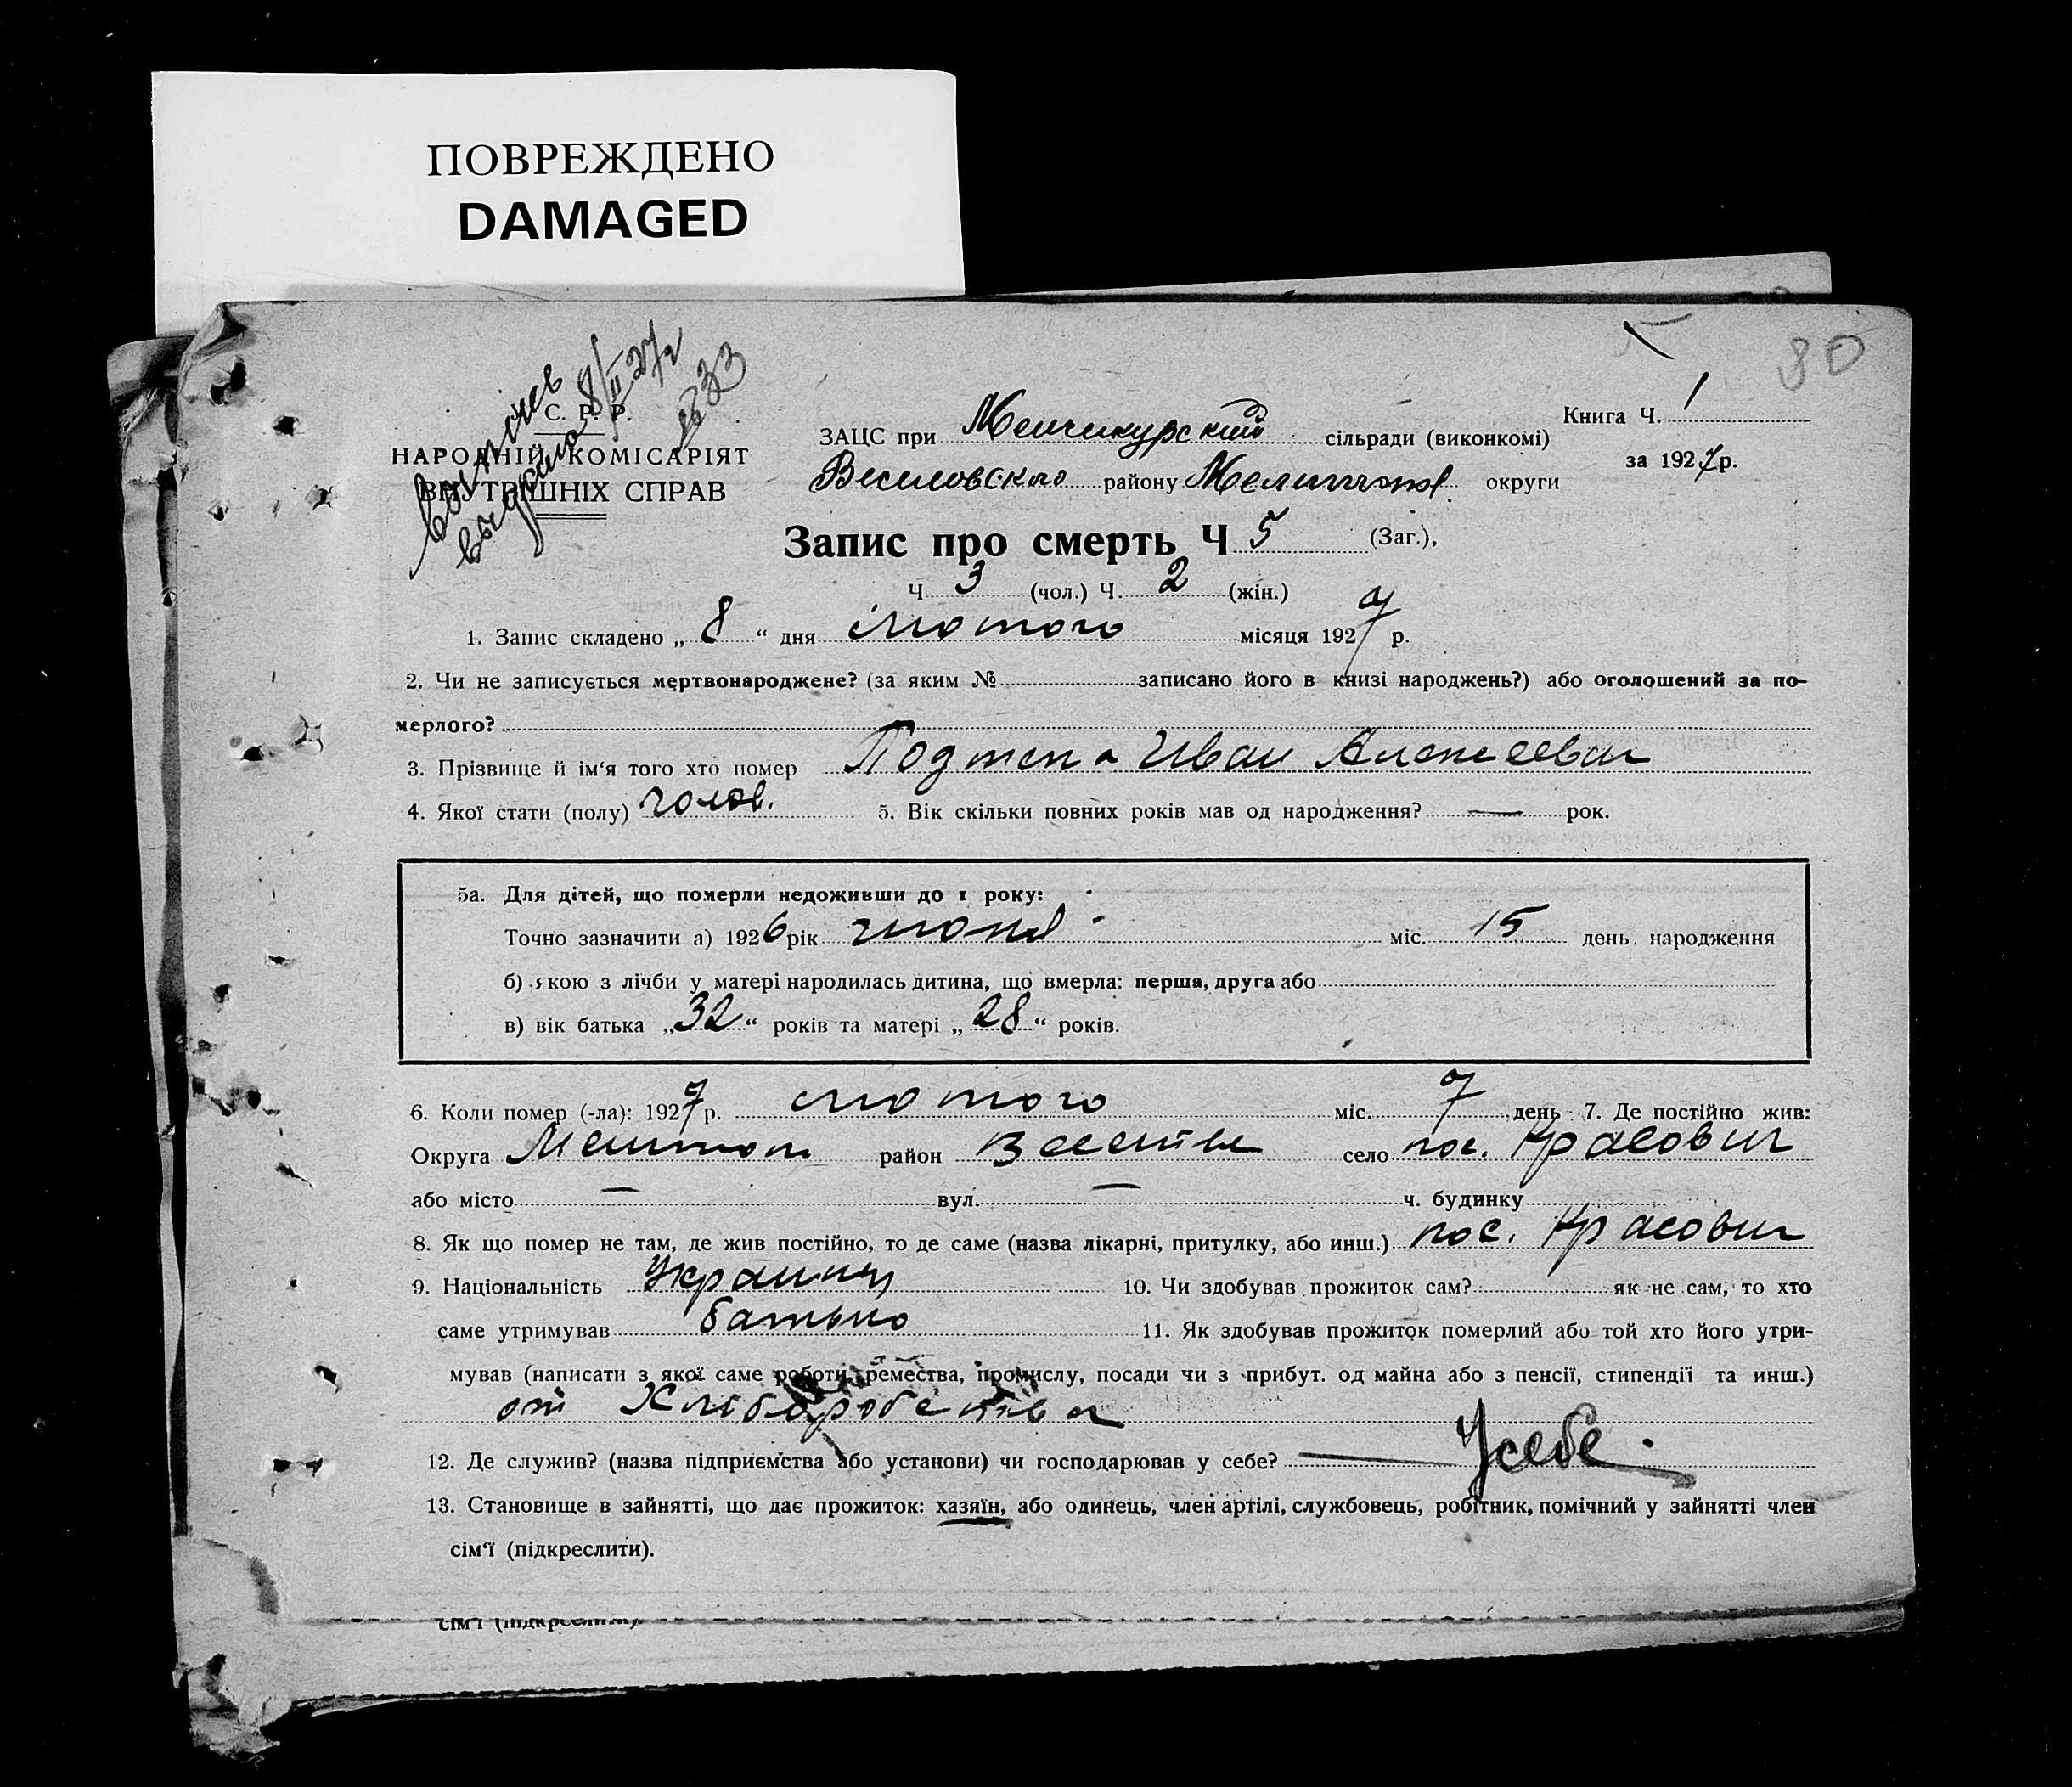 ПОВРЕЖДЕНО
DAMAGED
80
выдано 8/II 27 г
№ 33
С. Р. Р.
НАРОДНІЙ КОМІСАРІЯТ
ВНУТРІШНІХ СПРАВ
Книга Ч. 1
за 1927 р.
ЗАЦС при Менчикурский сільради (виконкомі)
Веселовского району Мелитоп. округи
Запис про смерть Ч 5 (Заг.),
Ч 3 (чол.) Ч. 2 (жін.)
1. Запис складено „ 8 “ дня лютого місяця 1927 р.
2. Чи не записується мертвонароджене? (за яким № записано його в книзі народжень?) або оголошений за по-
мерлого?
3. Прізвище й ім‘я того хто помер Подтепа Иван Алексеевич
4. Якої стати (полу) чолов. 5. Вік скільки повних років мав од народження? — рок.
5а. Для дітей, що померли недоживши до 1 року:
Точно зазначити а) 1926 рік міс. 15 день народження
б) якою з лічби у матері народилась дитина, що вмерла: перша, друга або
в) вік батька „32“ років та матері „28“ років.
6. Коли помер (-ла): 1927 р. лютого міс. 7 день 7. Де постійно жив:
Округа Мелитоп район село пос.
або місто — вул. — ч. будинку
8. Як що помер не там, де жив постійно, то де саме (назва лікарні, притулку, або инш.) пос.
9. Національність Украинец 10. Чи здобував прожиток сам? як не сам, то хто
саме утримував батько 11. Як здобував прожиток померлий або той хто його утри-
мував (написати з якої саме роботи, ремества, промислу, посади чи з прибут. од майна або з пенсії, стипендії та инш.)
от Хліборобства
12. Де служив? (назва підприємства або установи) чи господарював у себе? — У себе.
13. Становище в зайнятті, що дає прожиток: хазяїн, або одинець, член артілі, службовець, робітник, помічний у зайнятті член
сім‘ї (підкреслити).
сім‘ї (підкреслити).